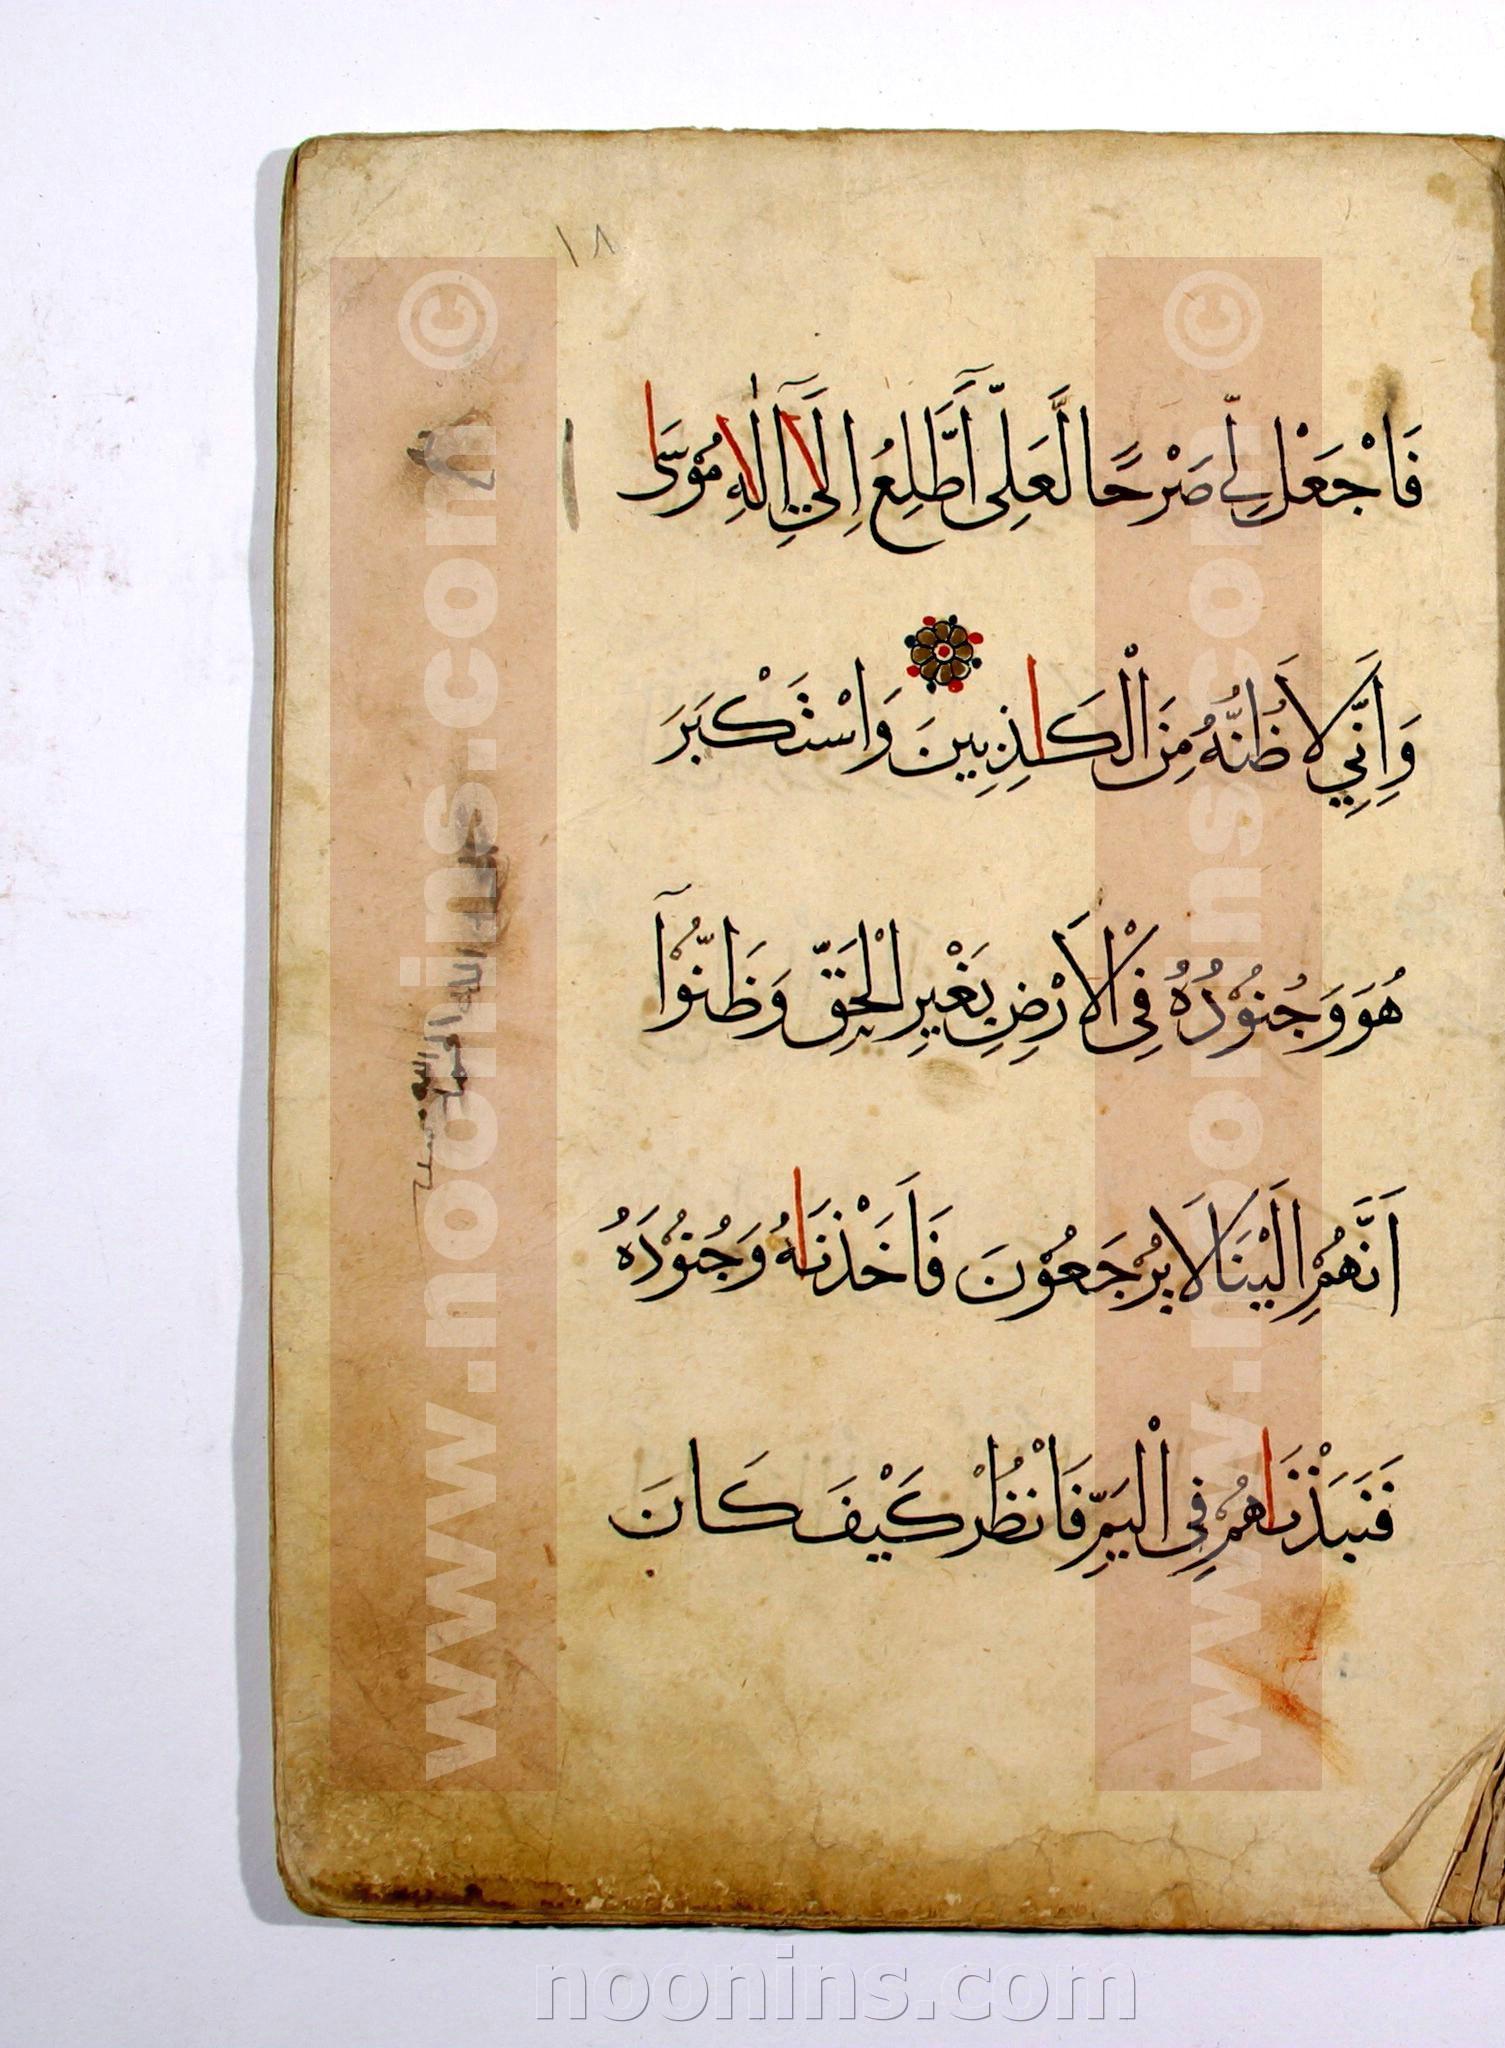 ١٨
فَاجْعَلْ لِي صَرْحًا لَّعَلِّي أَطَّلِعُ اِلَىٰٓ اِلٰهِ مُوسَىٰ
وَاِنِّي لَاَظُنُّهُ مِنَ الْكَاذِبِينَ وَاسْتَكْبَرَ
هُوَ وَجُنُوْدُهُ فِي الْاَرْضِ بِغَيْرِ الْحَقِّ وَظَنُّوْٓا
اَنَّهُمْ اِلَيْنَا لَا يُرْجَعُوْنَ فَاَخَذْنَاهُ وَجُنُوْدَهُ
فَنَبَذْنَاهُمْ فِي الْيَمِّ فَانْظُرْ كَيْفَ كَانَ
www.noonins.com ©
www.noonins.com ©
noonins.com